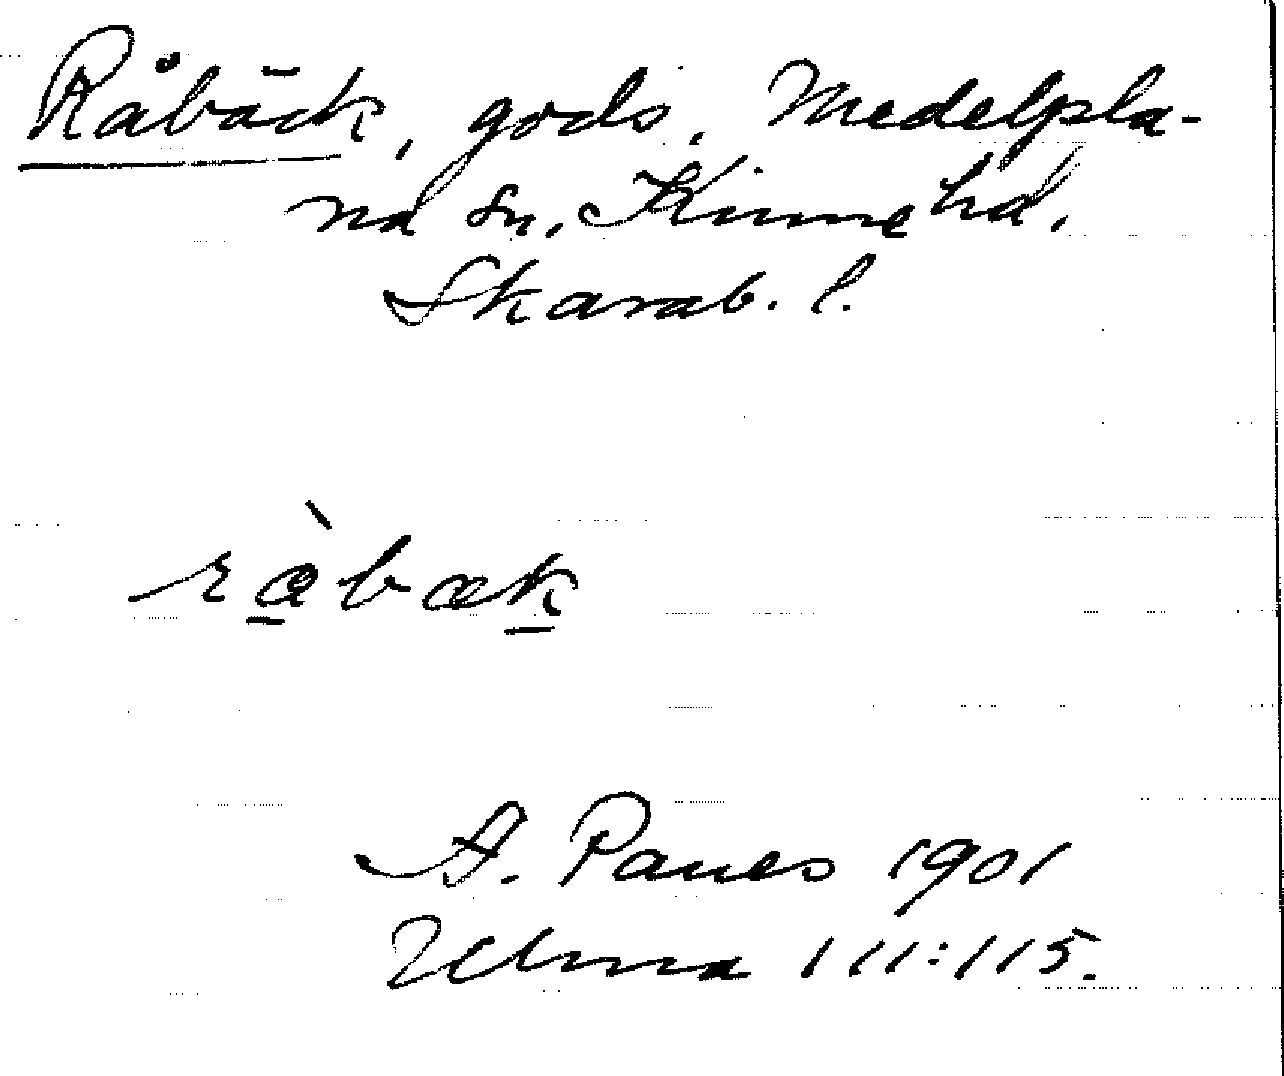 Råbäck, gods, Medelpla-
na sn, Kinne hd.
Skarab. l.
ràbæk
A. Paues 1901
Ulma 111:115.